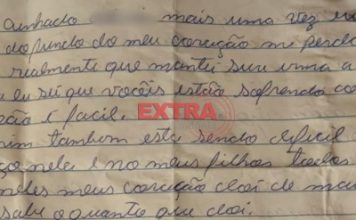 cunhado mais uma vez
do fundo do meu coração mi perdo
rialmente que
eu sei que vocêis estão sofrendo co
é facil.
EXTRA
im tambem esta sendo dificil
ço nele e no meus filhos todos
neles meus coração doi de mai
sabe o quanto que doi.